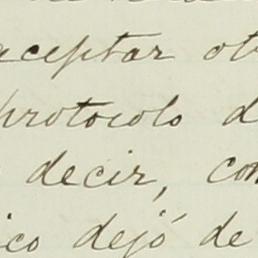 aceptar ot
protocolo d
decir, con
ico dejó de